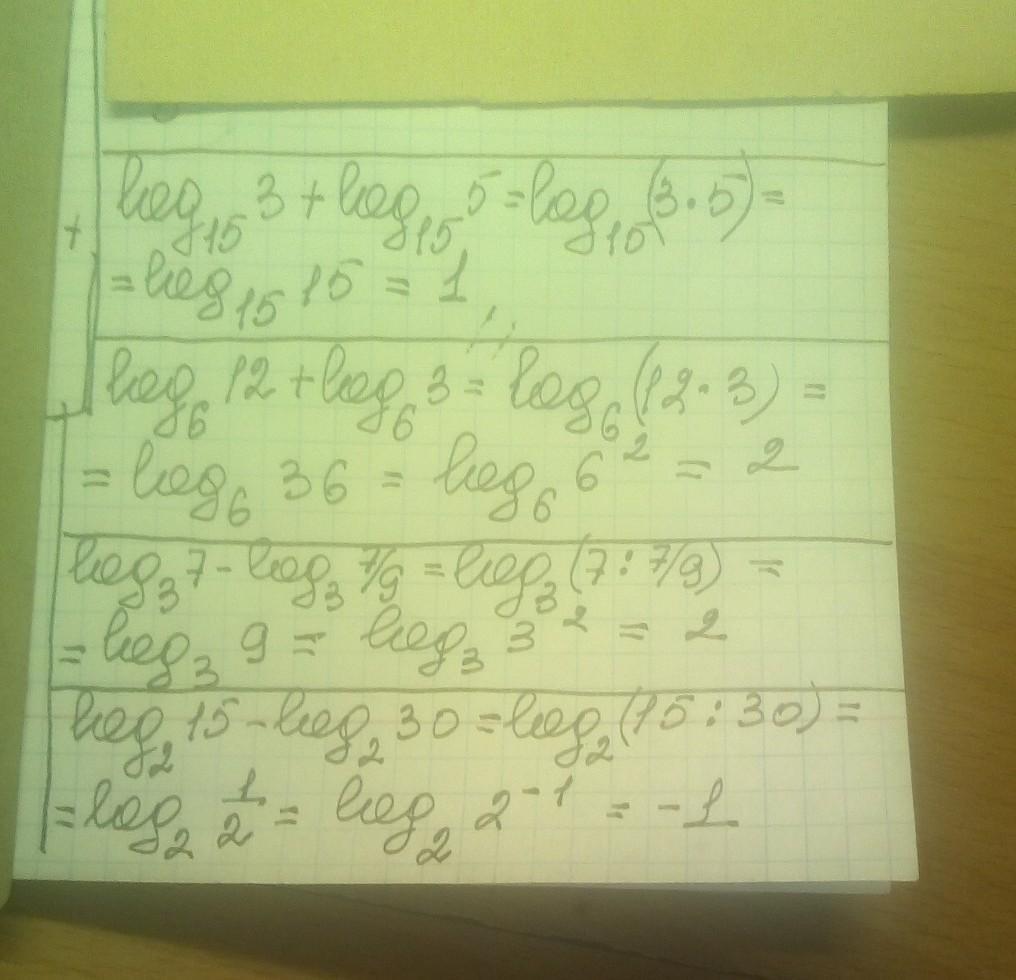 log₁₅ 3 + log₁₅ 5 = log₁₅ (3 · 5) =
+
= log₁₅ 15 = 1
log₆ 12 + log₆ 3 = log₆ (12 · 3) =
= log₆ 36 = log₆ 6² = 2
log₃ 7 - log₃ 7/9 = log₃ (7 : 7/9) =
= log₃ 9 = log₃ 3² = 2
log₂ 15 - log₂ 30 = log₂ (15 : 30) =
= log₂ 1/2 = log₂ 2⁻¹ = -1